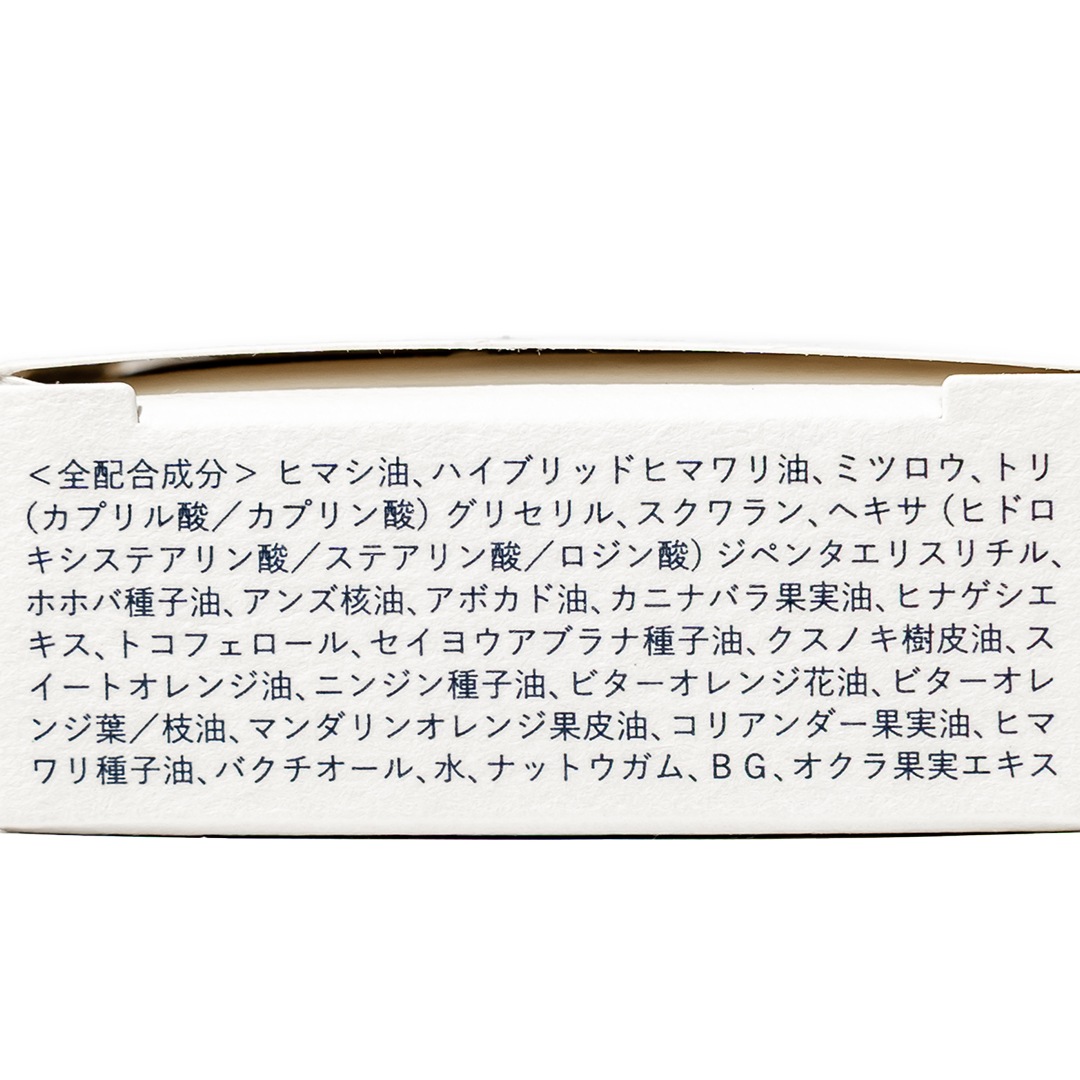 ＜全配合成分＞ ヒマシ油、ハイブリッドヒマワリ油、ミツロウ、トリ
(カプリル酸／カプリン酸) グリセリル、スクワラン、ヘキサ (ヒドロ
キシステアリン酸／ステアリン酸／ロジン酸) ジペンタエリスリチル、
ホホバ種子油、アンズ核油、アボカド油、カニナバラ果実油、ヒナゲシエ
キス、トコフェロール、セイヨウアブラナ種子油、クスノキ樹皮油、ス
イートオレンジ油、ニンジン種子油、ビターオレンジ花油、ビターオレ
ンジ葉／枝油、マンダリンオレンジ果皮油、コリアンダー果実油、ヒマ
ワリ種子油、バクチオール、水、ナットウガム、ＢＧ、オクラ果実エキス